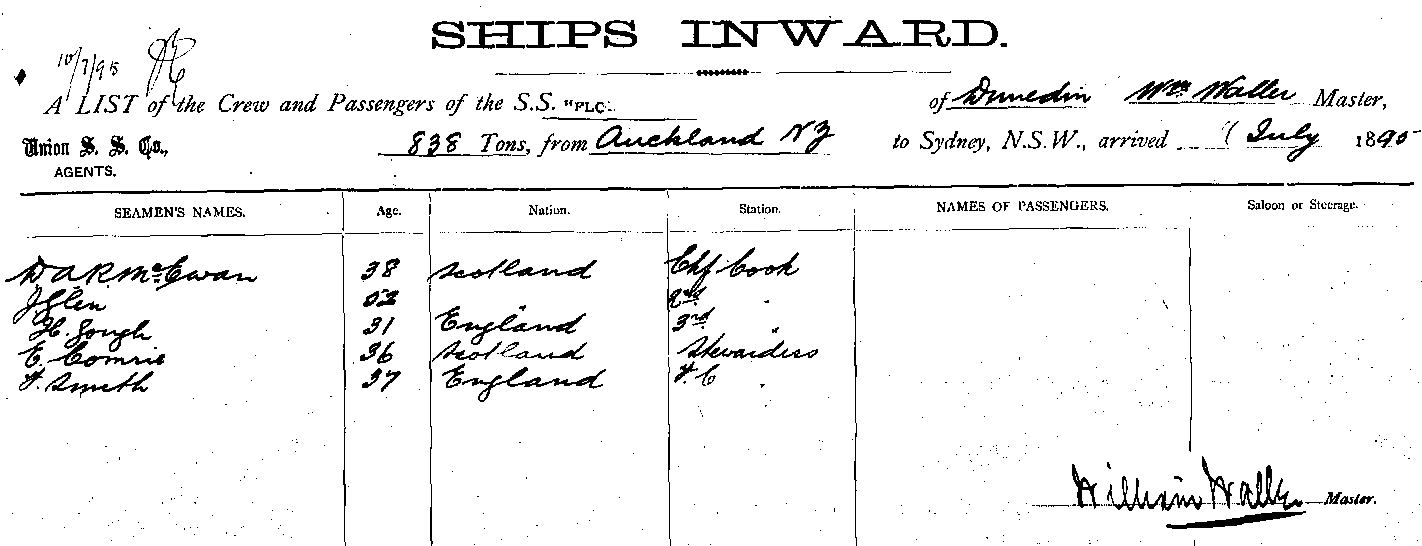 SHIPS INWARD.
10/7/95
A LIST of the Crew and Passengers of the S.S. "FLO of Dunedin Wm Waller Master,
Union S. S. Co., 838 Tons, from Auckland NZ to Sydney, N.S.W., arrived July 1895
AGENTS.
SEAMEN'S NAMES. Age. Nation. Station. NAMES OF PASSENGERS. Saloon or Steerage.
D A R McEwan 38 Scotland Chf Cook
J Glen 52 " 2nd "
H. Gough 31 England 3rd "
E. Comrie 36 Scotland Stewardess
F. Smith 37 England F. C "
William Waller Master.